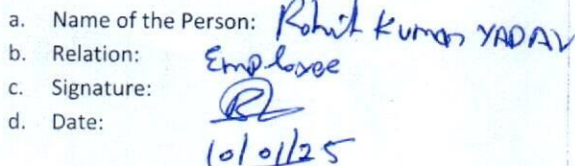 a. Name of the Person: Rohit Kumar YADAV
b. Relation: Employee
c. Signature:
d. Date: 10/01/25